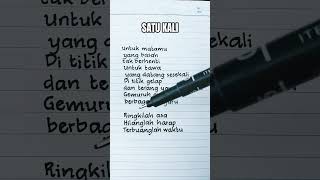 SATU KALI
Untuk matamu
yang basah
Tak berhenti
Untuk tawa
yang datang sesekali
Di titik gelap
dan terang
Gemuruh
Ringkilah asa
Hilanglah harap
Terbuanglah waktu